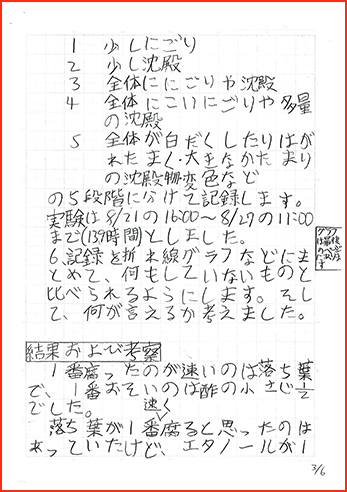 1 少しにごり
2 少し沈殿
3 全体ににごりや沈殿
4 全体にこいにごりや多量
の沈殿
5 全体が白だくしたりはが
れたまく・大きなかたまり
の沈殿物・変色など
の5段階に分けて記録します。
実験は8/21の16:00～8/27の11:00
まで(139時間)としました。
6、記録を折れ線グラフなどにま
とめて、何もしていないものと
比べられるようにします。そし
て、何が言えるか考えました。
結果および考察
1番腐ったのが速いのは落ち葉
で、1番おそいのは酢の小さじ1/2
でした。
速く
落ち葉が1番腐ると思ったのは
あっていたけど、エタノールが1
3/6